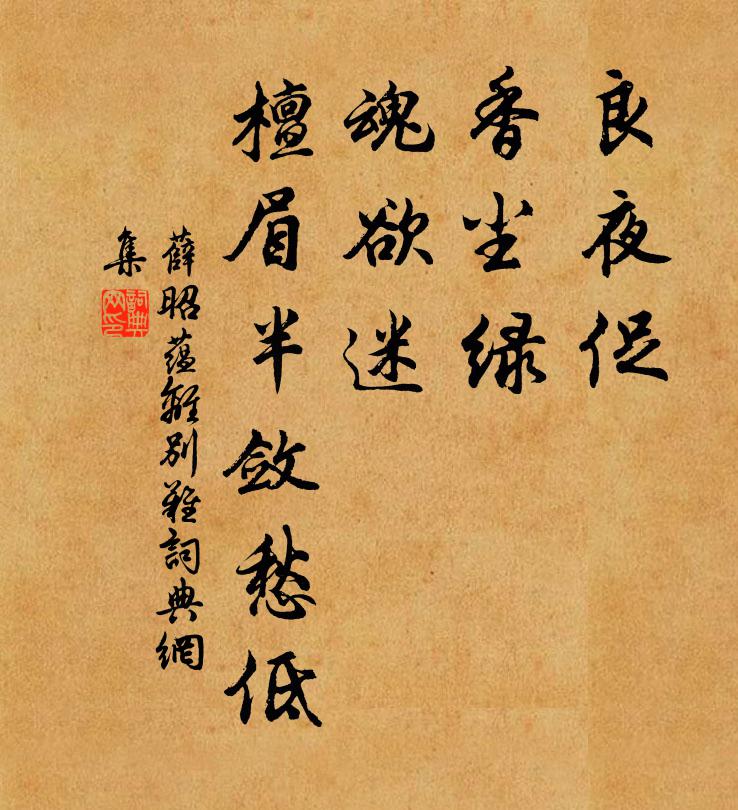 良夜促
香尘绿
魂欲迷
檀眉半敛愁低
薛昭蕴離别难詞典網
集
詞典
网印